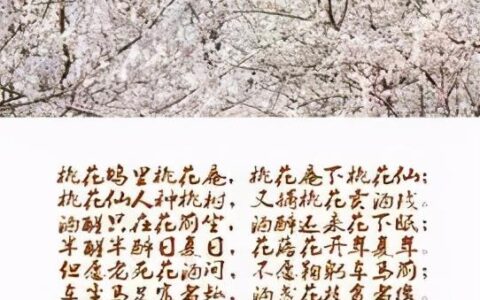 桃花坞里桃花庵，桃花庵下桃花仙；
桃花仙人种桃树，又摘桃花卖酒钱；
酒醒只在花前坐，酒醉还来花下眠；
半醒半醉日复日，花落花开年复年。
但愿老死花酒间，不愿鞠躬车马前；
车尘马足富者趣，酒盏花枝贫者缘。